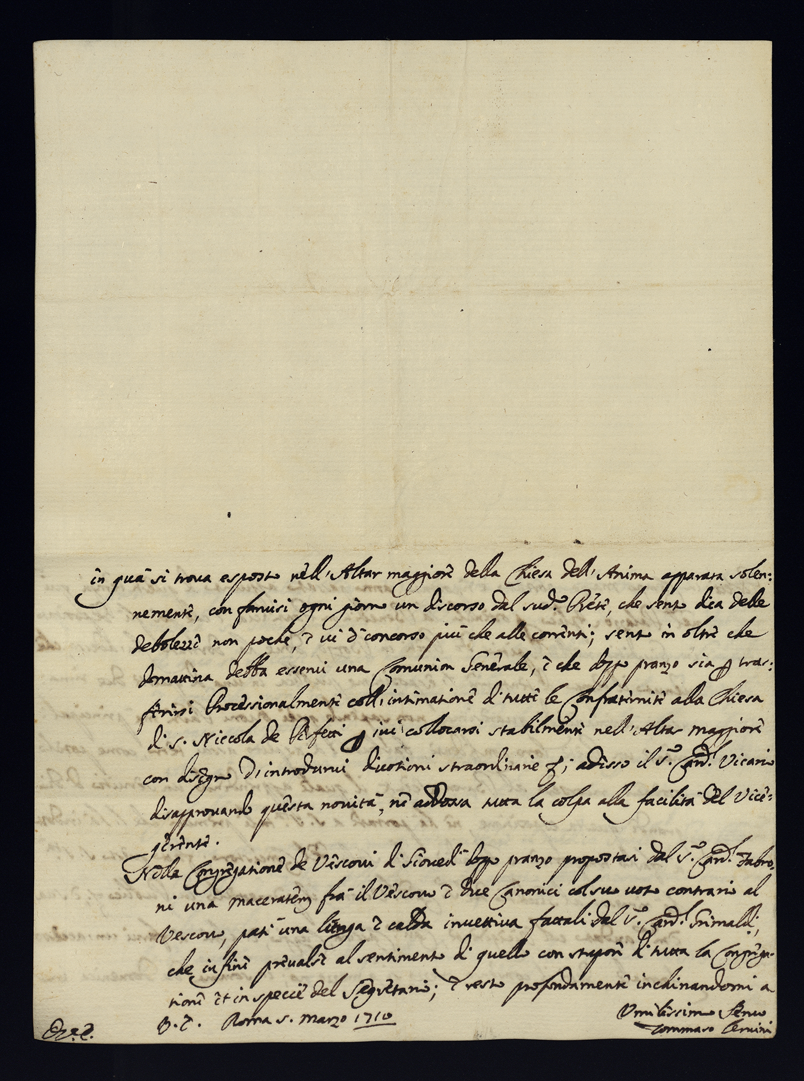 in quà si trova esposto nell'Altar maggiore della Chiesa dell'Anima apparata solen:
nemente, con farvisi ogni giorno un discorso dal sud.º Prete, che sento dica delle
debolezze non poche, e vi è concorso più che alle correnti; sento in oltre che
domattina debba esservi una Comunion Generale, e che dopo pranzo sia p tras:
ferirsi Processionalmente coll'intimatione di tutte le Confraternite alla Chiesa
di S. Niccola de Perfetti p ivi collocarsi stabilmente nell'Altar maggiore
con disegno d'introdurvi divotioni straordinarie; adesso il S.r Card.l Vicario
disapprovando questa novità, ne addossa tutta la colpa alla facilità del Vice:
gerente.
Nella Congregatione de Vescovi di Giovedì dopo pranzo propostasi dal S.r Card.l Fabro
ni una maceraten frà il Vescovo e due Canonici col suo voto contrario al
Vescovo, patì una lunga e calda invettiva fattali dal S.r Card.l Grimaldi,
che in fine prevalse al sentimento di quello con stupore di tutta la Congrega
tione et in specie del Segretario; e resto profondamente inchinandomi a
V. E. Roma 5. Marzo 1710
Umilissimo Servo
Tommaso Bernini